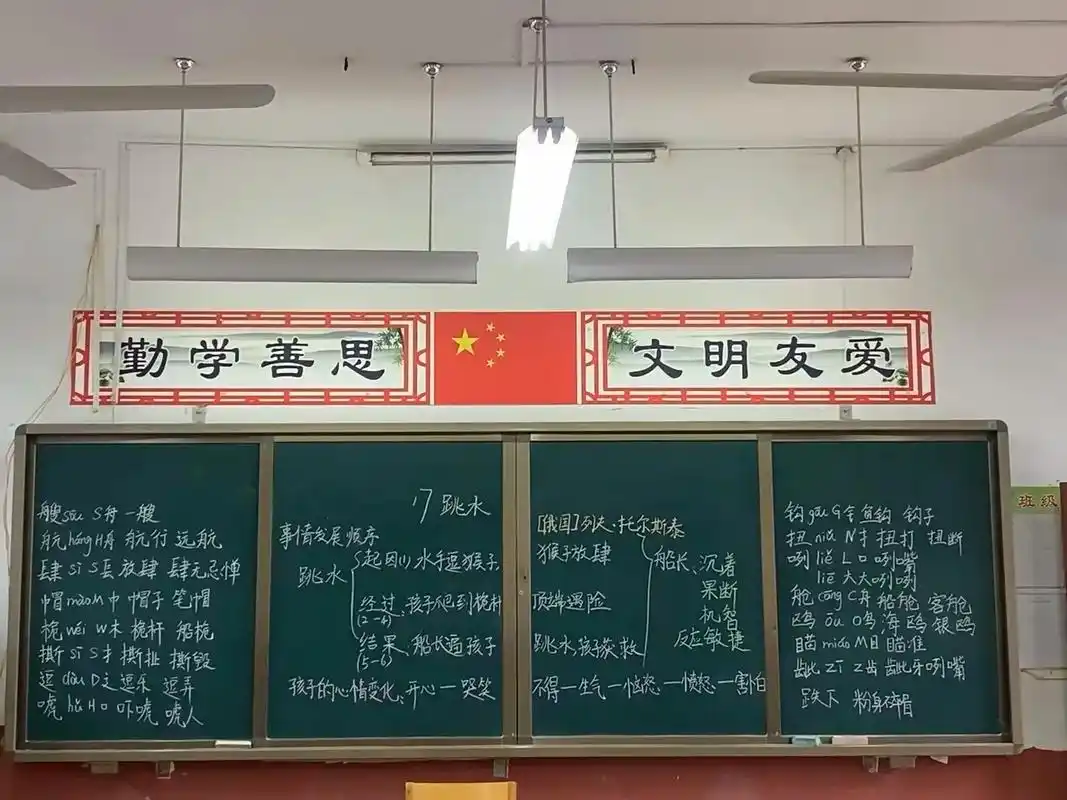 勤学善思
文明友爱
班级
艘 sōu S 舟 一艘
航 háng H 舟 航行 远航
肆 sì S 镸 放肆 肆无忌惮
帽 mào M 巾 帽子 笔帽
桅 wéi W 木 桅杆 船桅
撕 sī S 扌 撕扯 撕毁
逗 dòu D 辶 逗乐 逗弄
唬 hǔ H 口 吓唬 唬人
17 跳水
事情发展顺序
跳水
起因(1) 水手逗猴子
经过: 孩子爬到桅杆
(2-4)
结果: 船长逼孩子
(5-6)
孩子的心情变化: 开心一哭笑
[俄国]列夫·托尔斯泰
猴子放肆
顶端遇险
跳水,孩子获救
船长: 沉着
果断
机智
反应敏捷
不得一生气一恼怒一愤怒一害怕
钩 gōu G 钅 鱼钩 钩子
扭 niǔ N 扌 扭打 扭断
咧 liě L 口 咧嘴
liē 大大咧咧
舱 cāng C 舟 船舱 客舱
鸥 ōu O 鸟 海鸥 银鸥
瞄 miáo M 目 瞄准
龇 zī Z 齿 龇牙咧嘴
跌下 粉身碎骨